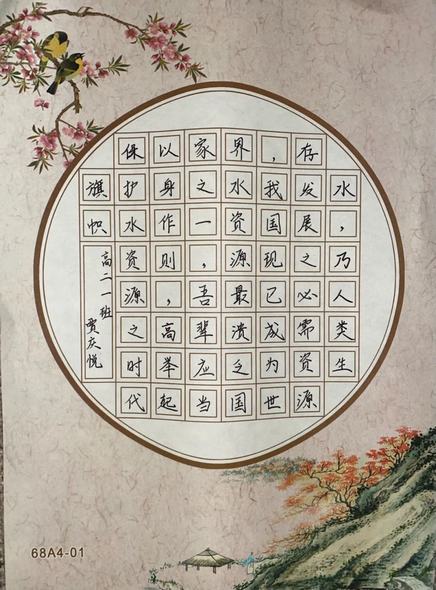 水，乃人类生
存发展之必需资源
，我国现已成为世
界水资源最溃乏国
家之一，吾辈应当
以身作则，高举起
保护水资源之时代
旗帜
高二一班 贾庆悦
68A4-01